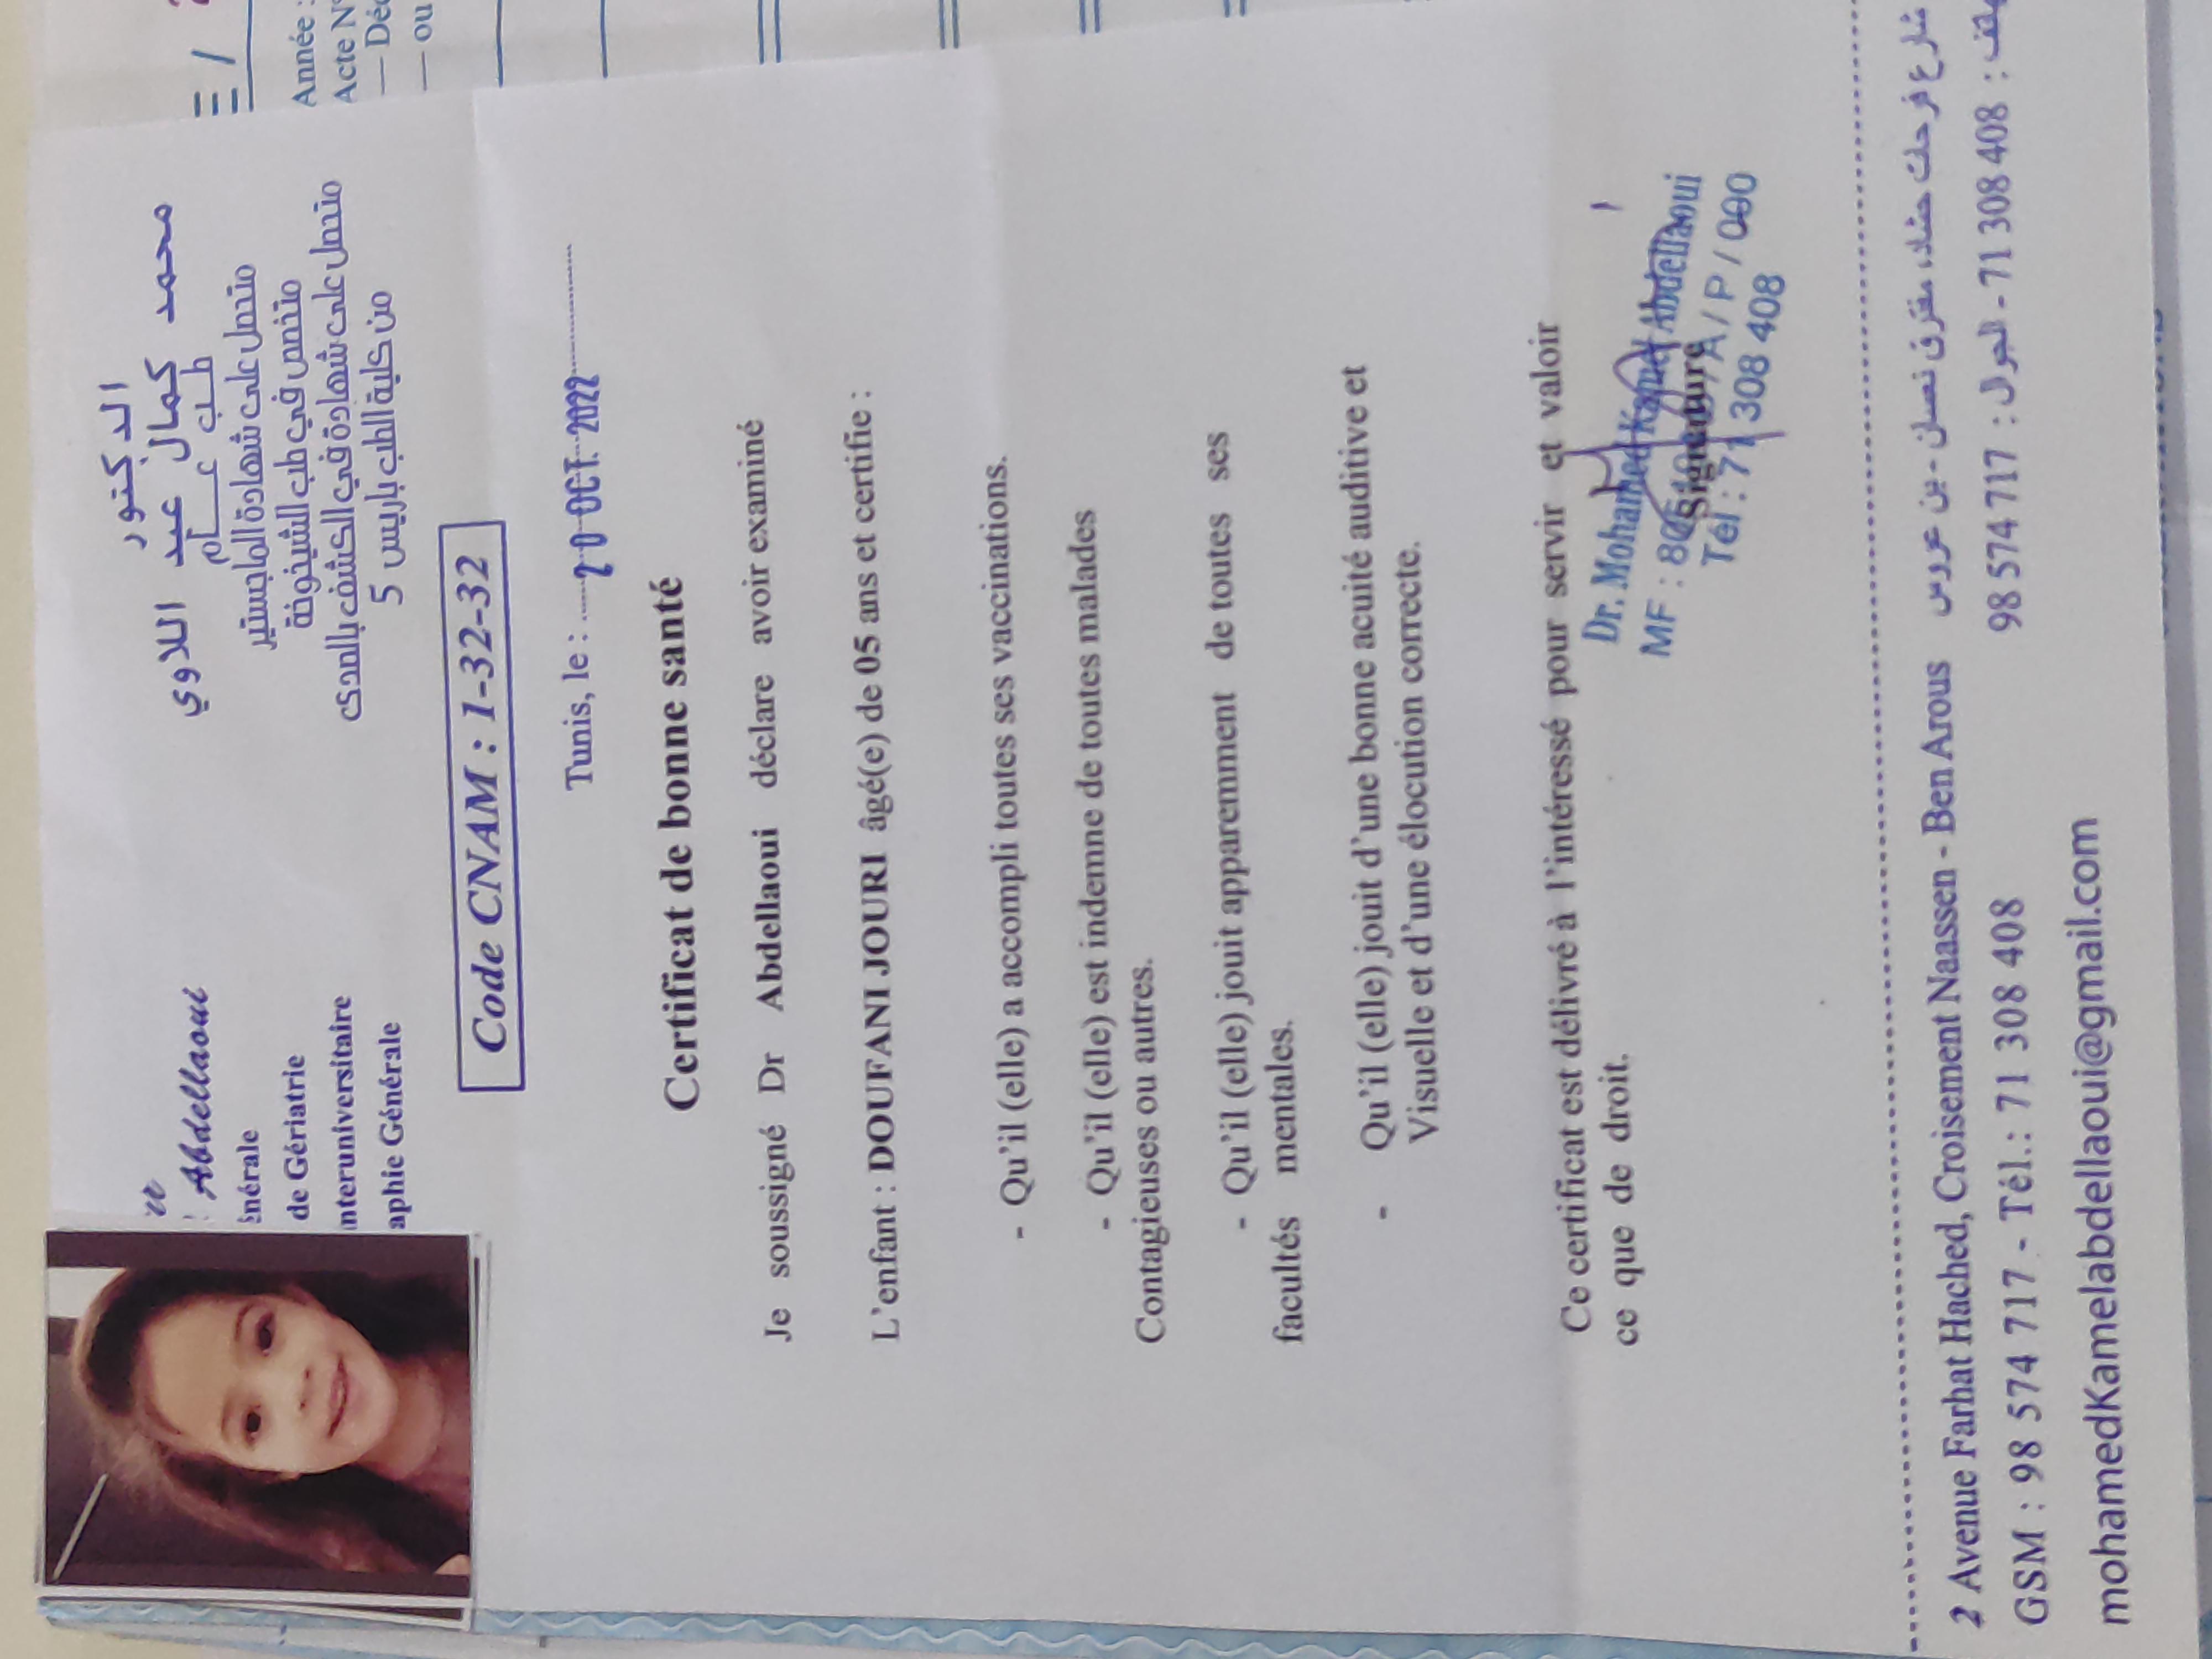 الدكتور
محمد كمال عبد اللاوي
طب عام
متحصل على شهادة الماجستير
متخصص في طب الشيخوخة
متحصل على شهادة في الكشف بالصدى
من كلية الطب باريس 5
Abdellaoui
de Gériatrie
nteruniversitaire
aphie Générale
Année :
Acte N°
— Déc
— ou
Code CNAM : 1-32-32
Tunis, le : 20 OCT. 2022
Certificat de bonne santé
Je soussigné Dr Abdellaoui déclare avoir examiné
L'enfant : DOUFANI JOURI âgé(e) de 05 ans et certifie :
- Qu'il (elle) a accompli toutes ses vaccinations.
- Qu'il (elle) est indemne de toutes malades
Contagieuses ou autres.
- Qu'il (elle) jouit apparemment de toutes ses
facultés mentales.
- Qu'il (elle) jouit d'une bonne acuité auditive et
Visuelle et d'une élocution correcte.
Ce certificat est délivré à l'intéressé pour servir et valoir
ce que de droit.
Dr. Mohamed Kamel Abdellaoui
MF : /A/P/000
Signature
Tél : 71 308 408
2 Avenue Farhat Hached, Croisement Naassen - Ben Arous شارع فرحات حشاد، مفترق نعسان - بن عروس
GSM : 98 574 717 - Tél.: 71 308 408 98 574 717 : الجوال - 71 308 408 :
mohamedKamelabdellaoui@gmail.com